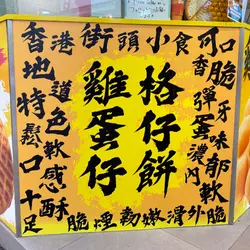 香港街頭小食
可口
香脆
地道
特色
鬆軟
口感
十足
雞蛋仔
格仔餅
彈牙
蛋味
濃郁
內軟
外脆
酥脆
煙韌
嫩滑